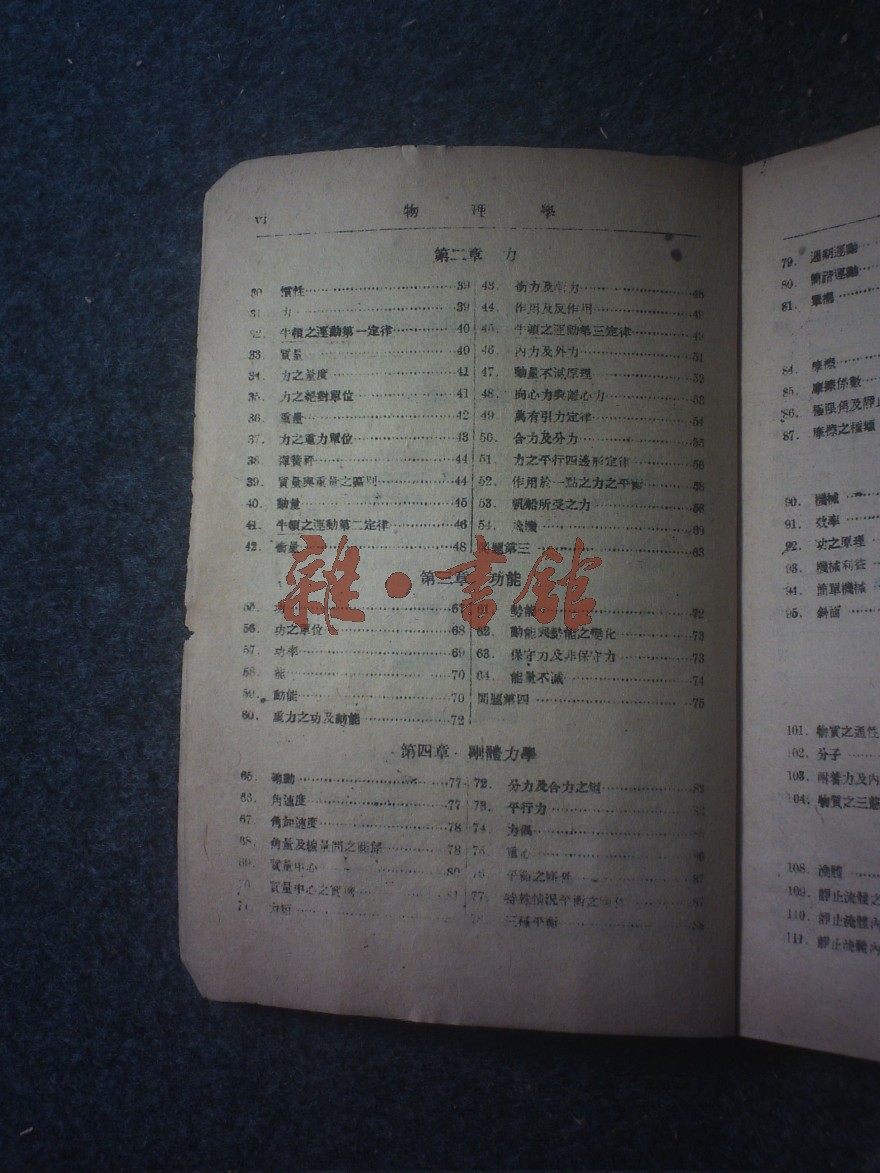 vi
物 理 學
第二章 力
30. 慣性 39
31. 力 39
32. 牛頓之運動第一定律 40
33. 質量 40
34. 力之量度 41
35. 力之絕對單位 41
36. 重量 42
37. 力之重力單位 43
38. 彈簧秤 44
39. 質量與重量之區別 44
40. 動量 45
41. 牛頓之運動第二定律 46
42. 衝量 48
43. 衝力及 力 48
44. 作用及反作用 49
45. 牛頓之運動第三定律 49
46. 內力及外力 51
47. 動量不滅原理 52
48. 向心力與離心力
49. 萬有引力定律 54
50. 合力及分力 55
51. 力之平行四邊形定律 56
52. 作用於一點之力之平衡
53. 帆船所受之力
54. 飛機
問題第三 63
第三章 功能
55. 功 67
56. 功之單位 68
57. 功率 69
58. 能 70
59. 動能 70
60. 重力之功及動能 72
61. 勢能 72
62. 動能與勢能之變化 73
63. 保守力及非保守力 73
64. 能量不滅 74
問題第四 75
第四章 剛體力學
65. 滾動 77
66. 角速度 77
67. 角加速度 78
68. 角量及線量間之關係 79
69. 質量中心 80
70. 質量中心之實例 81
71. 力矩
72. 分力及合力之矩
73. 平行力
74. 力偶
75. 重心
76. 平衡之條件 87
77. 特殊情況平衡之條件 87
78. 三種平衡 88
79. 週期運動
80. 簡諧運動
81. 單擺
84. 摩擦
85. 摩擦係數
86. 極限角及靜止
87. 摩擦之種類
90. 機械
91. 效率
92. 功之原理
93. 機械利益
94. 簡單機械
95. 斜面
101. 物質之通性
102. 分子
103. 附著力及內
104. 物質之三態
108. 流體
109. 靜止流體之
110. 靜止流體內
111. 靜止流體內
雜·書館